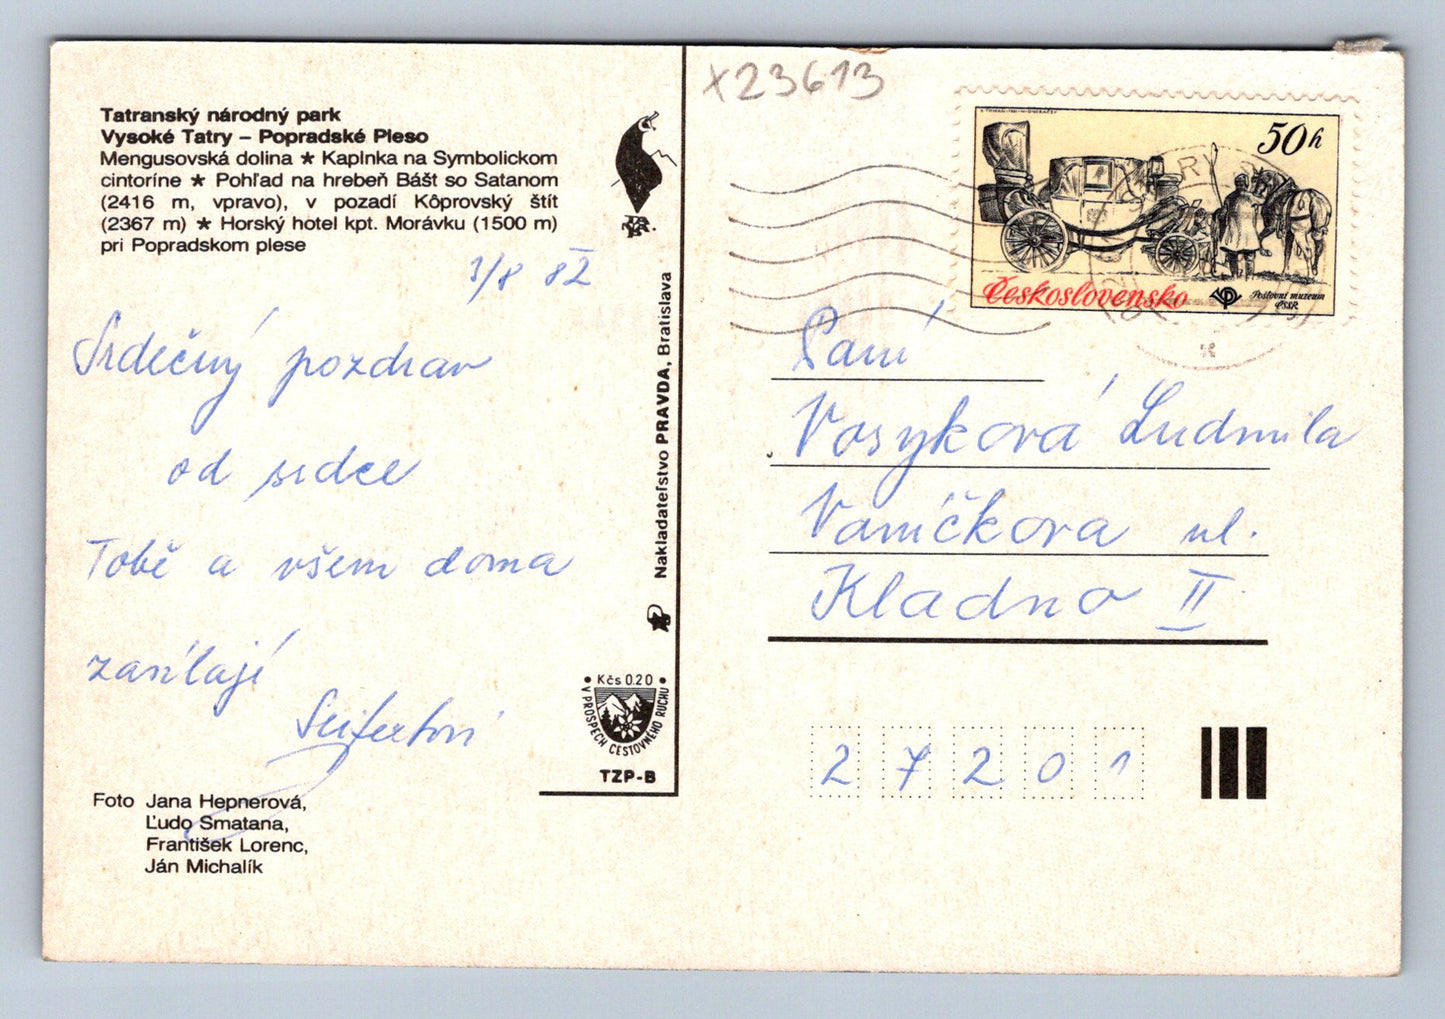 Tatranský národný park
Vysoké Tatry – Popradské Pleso
Mengusovská dolina ★ Kaplnka na Symbolickom
cintoríne ★ Pohľad na hrebeň Bášt so Satanom
(2416 m, vpravo), v pozadí Kôprovský štít
(2367 m) ★ Horský hotel kpt. Morávku (1500 m)
pri Popradskom plese
1/8 82
Srdečný pozdrav
od srdce
Tobě a všem doma
zasílají
Seifertovi
Foto Jana Hepnerová,
Ľudo Smatana,
František Lorenc,
Ján Michalík
Nakladateľstvo PRAVDA, Bratislava
Kčs 0.20
V PROSPECH CESTOVNÉHO RUCHU
TZP-B
X23613
50h
Československo
Poštovní muzeum
ČSSR
Paní
Vosyková Ludmila
Vaníčkova ul.
Kladno II.
27201